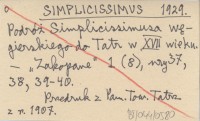 SIMPLICISSIMUS 1929.
Podróż Simplicissimusa wę-
gierskiego do Tatr w XVII wieku.
— „Zakopane" 1 (8), nry 37,
38, 39-40.
Przedruk z Pam. Tow. Tatrz.
z r. 1907.